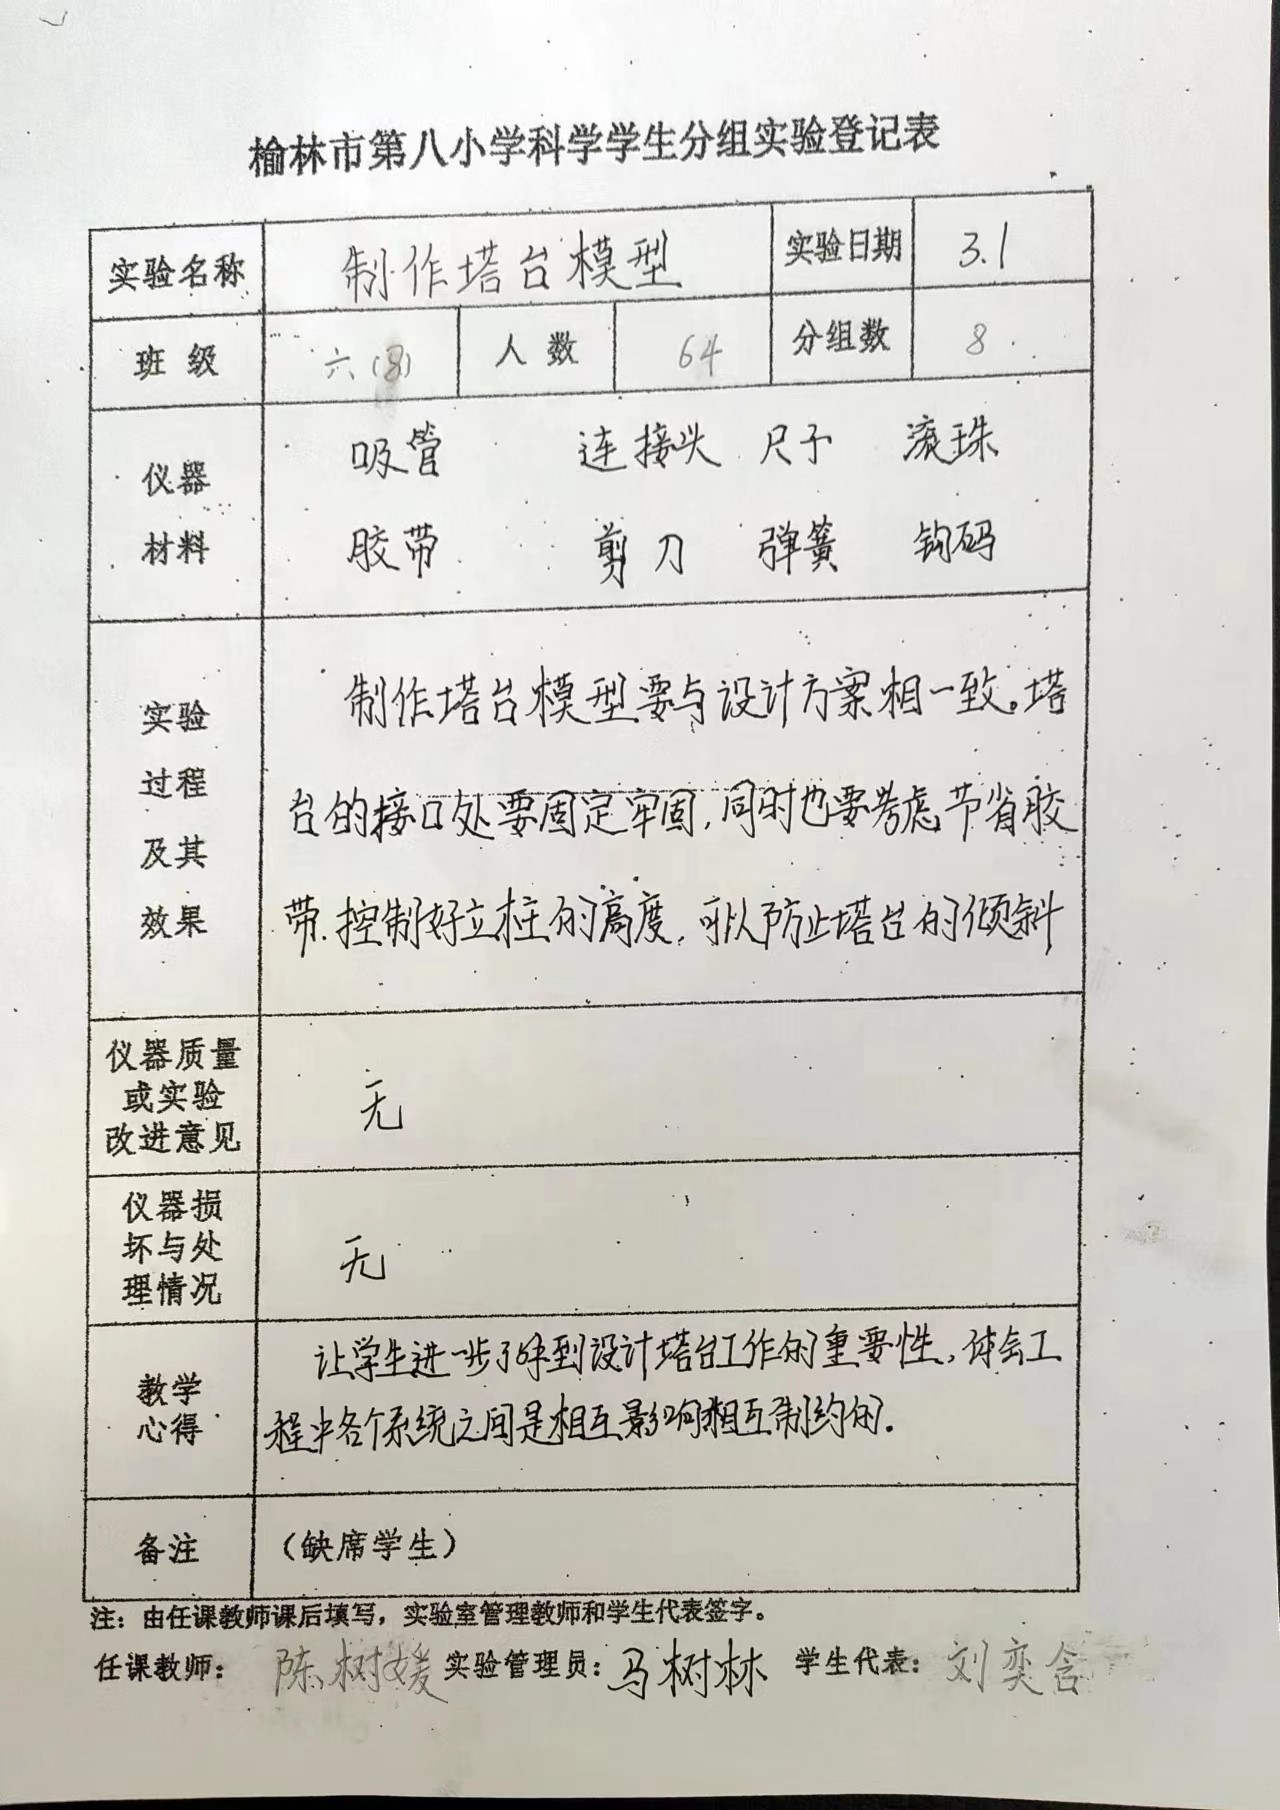 榆林市第八小学科学学生分组实验登记表
实验名称 制作塔台模型 实验日期 3.1
班 级 六(8) 人 数 64 分组数 8
仪器 材料
吸管 连接头 尺子 滚珠
胶带 剪刀 弹簧 钩码
实验 过程 及其 效果
制作塔台模型要与设计方案相一致。塔
台的接口处要固定牢固,同时也要考虑节省胶
带.控制好立柱的高度,可以防止塔台的倾斜
仪器质量
或实验
改进意见
无
仪器损
坏与处
理情况
无
教学
心得
让学生进一步了解到设计塔台工作的重要性,体会工
程中各个系统之间是相互影响相互制约的.
备注 (缺席学生)
注:由任课教师课后填写,实验室管理教师和学生代表签字。
任课教师: 陈树媛 实验管理员: 马树林 学生代表: 刘奕含